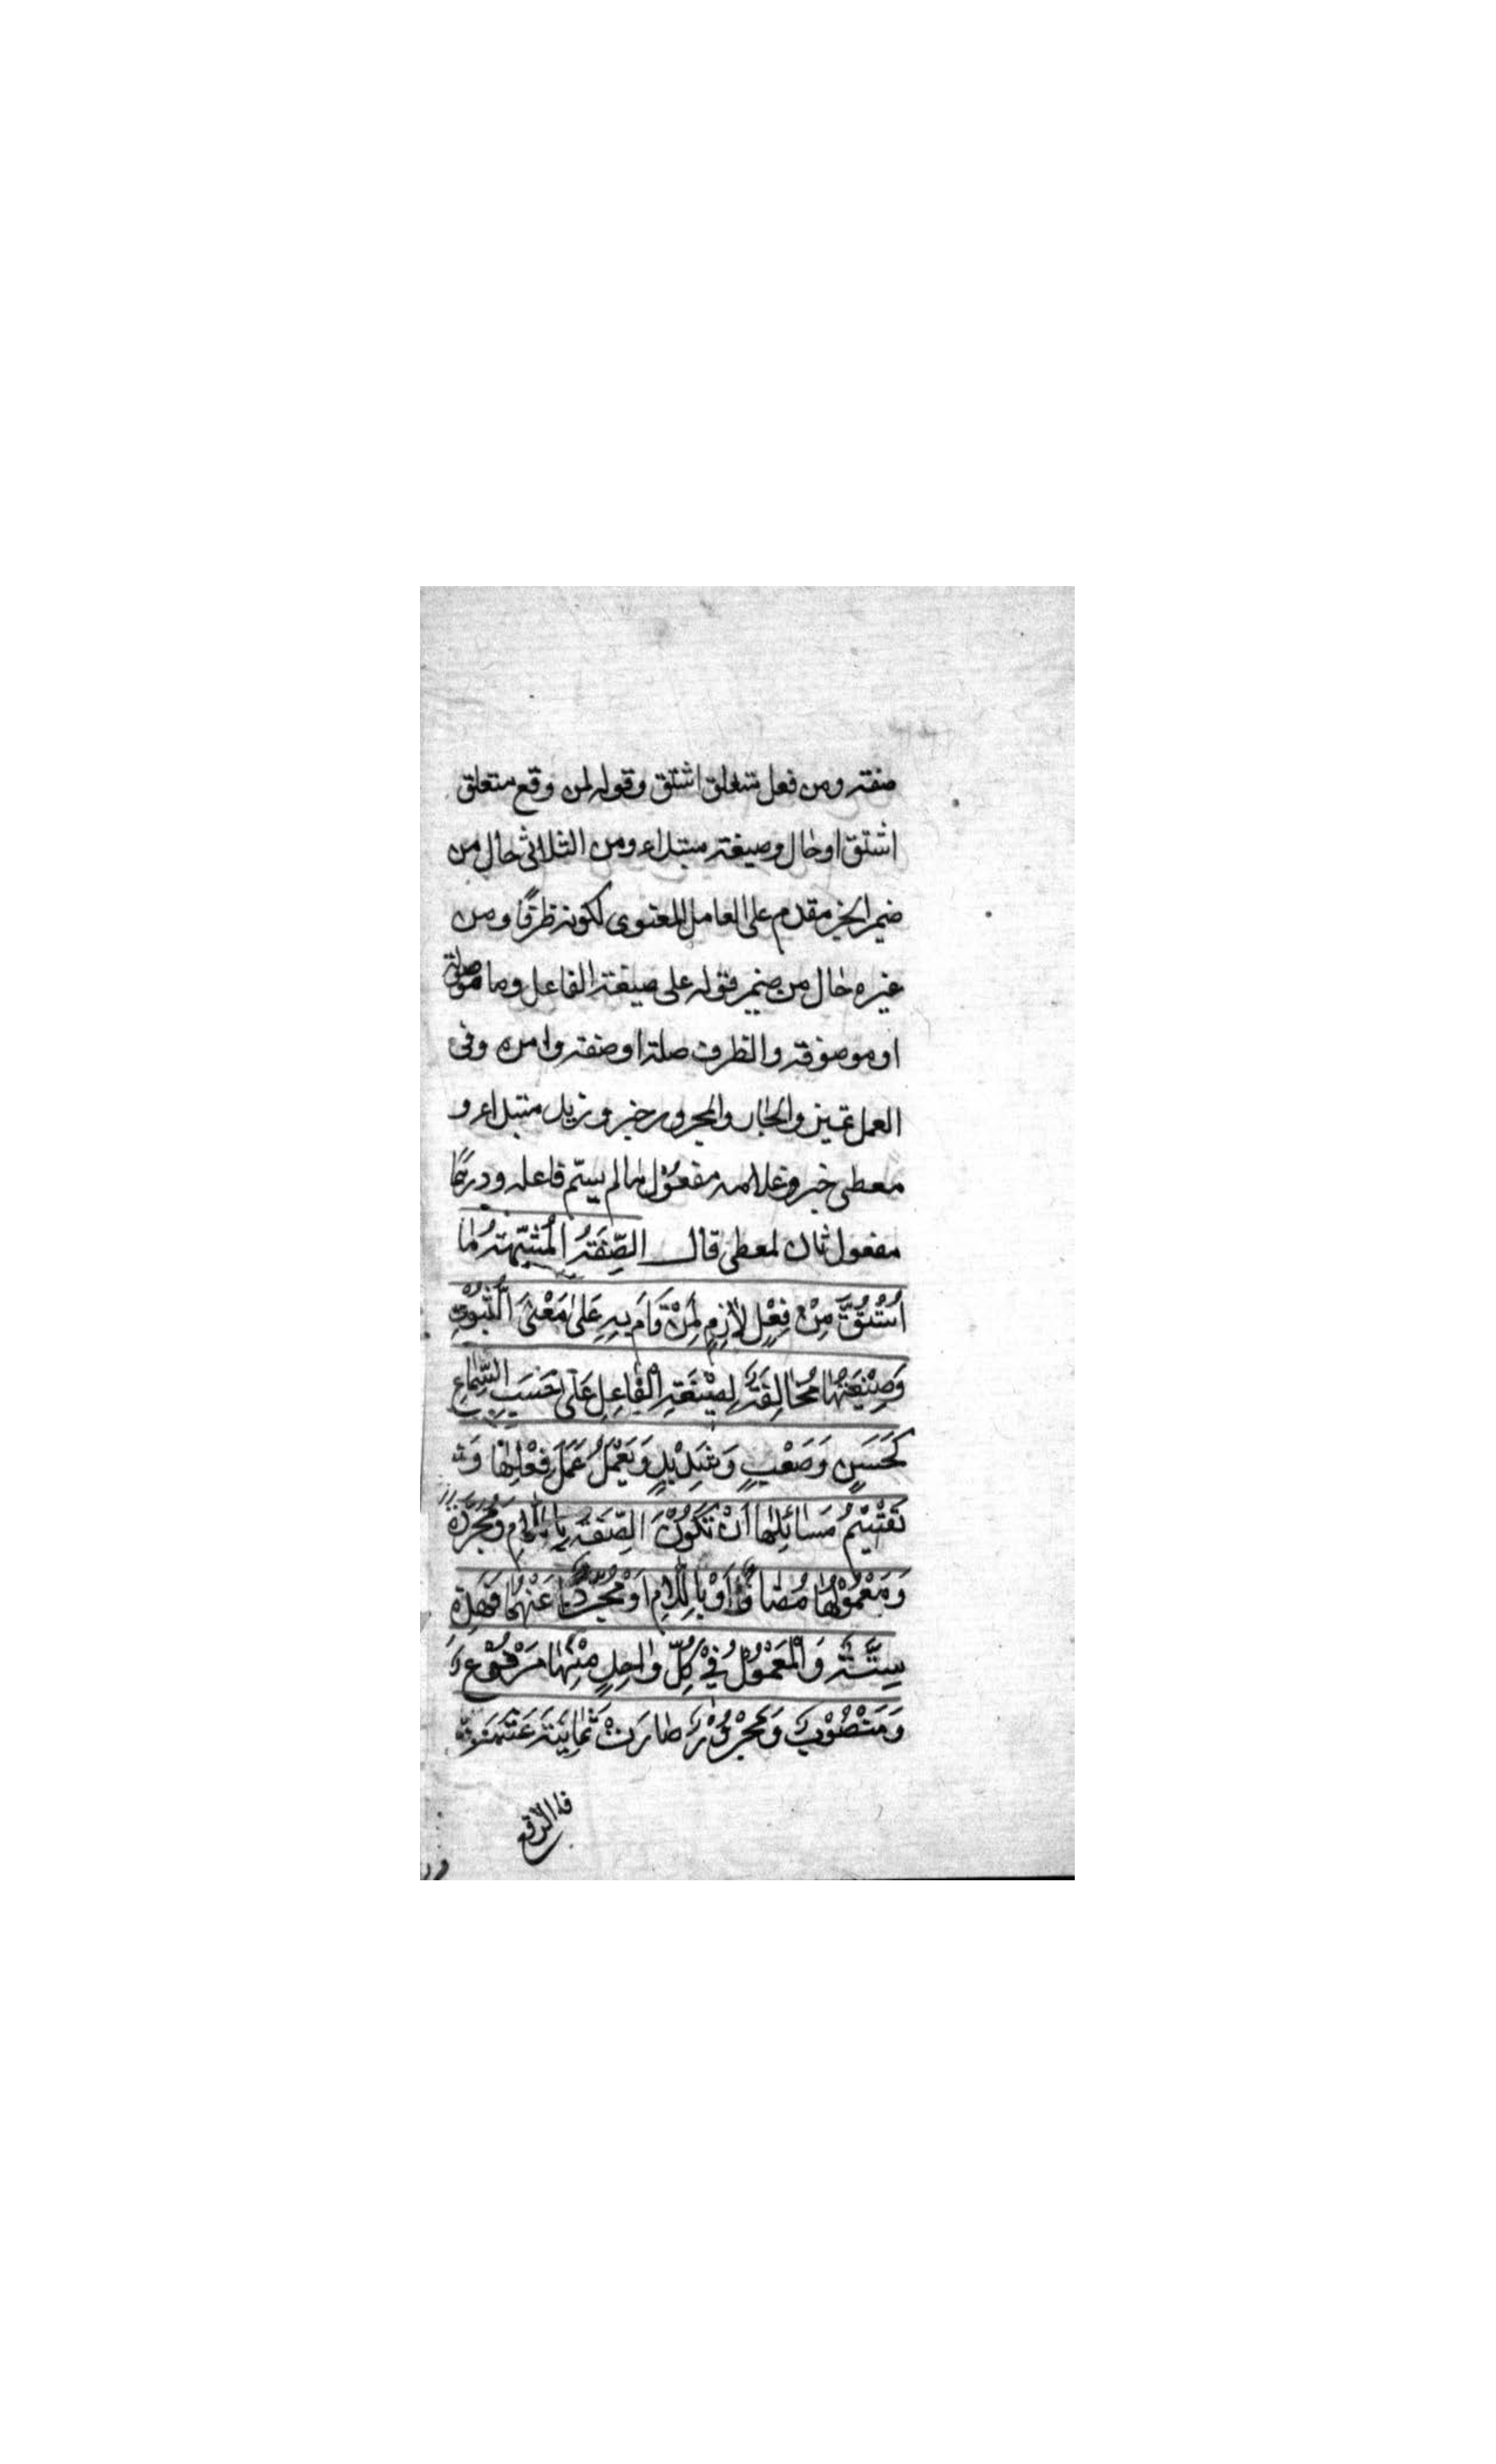 صفته ومن فعل متعلق اشتق وقوله لمن وقع متعلق
اشتق او حال وصيغته مبتداء ومن الثلاثى حال من
ضمير الخبر مقدم على العامل المعنوى لكونه ظرفًا ومن
غيره حال من ضمير قوله على صيغة الفاعل وما موصولة
او موصوفة والظرف صلة او صفته وامره وفى
العمل تميز والجار والمجرور خبر وزيد مبتداء و
معطى خبر وغلامه مفعول مالم يسمّ فاعله ودرهمًا
مفعول ثان لمعطى قال الصِّفَةُ الْمُشَبَّهَةُ مَا
اُشْتُقَّ مِنْ فِعْلٍ لَازِمٍ لِمَنْ قَامَ بِهِ عَلَى مَعْنَى الثُّبُوْتِ
وَصِيْغَتُهَا مُخَالِفَةٌ لِصِيْغَةِ الْفَاعِلِ عَلَى حَسَبِ السِّمَاعِ
كَحَسَنٍ وَصَعْبٍ وَشَدِيْدٍ وَيَعْمَلُ عَمَلَ فِعْلِهَا وَتَ
تَقْسِيْمُ مَسَائِلِهَا اَنْ تَكُوْنَ الصِّفَةُ بِاللَّامِ وَمُجَرَّدَةً
وَمَعْمُوْلُهَا مُضَافًا اَوْ بِاللَّامِ اَوْ مُجَرَّدًا عَنْهُمَا فَهٰذِهِ
سِتَّةٌ وَالْمَعْمُوْلُ فِيْ كُلِّ وَاحِدٍ مِنْهَا مَرْفُوْعٌ
وَمَنْصُوْبٌ وَمَجْرُوْرٌ صَارَتْ ثَمَانِيَةَ عَشَرَ